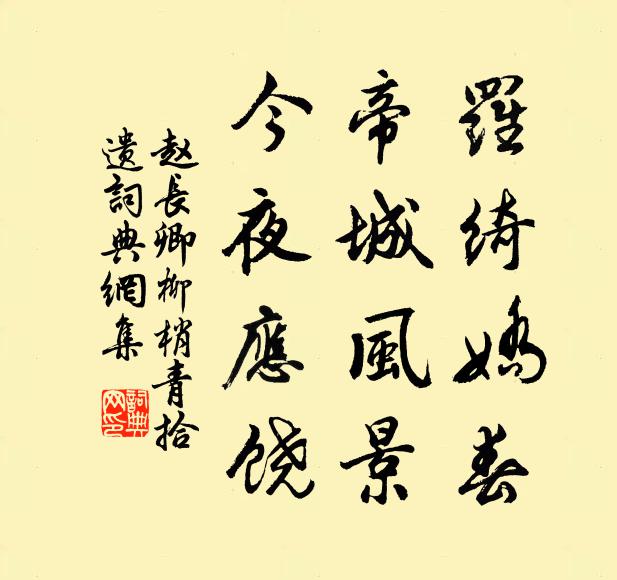 羅綺嬌春
帝城風景
今夜應饶
赵長卿柳梢青拾
遺詞典網集
詞典
网印